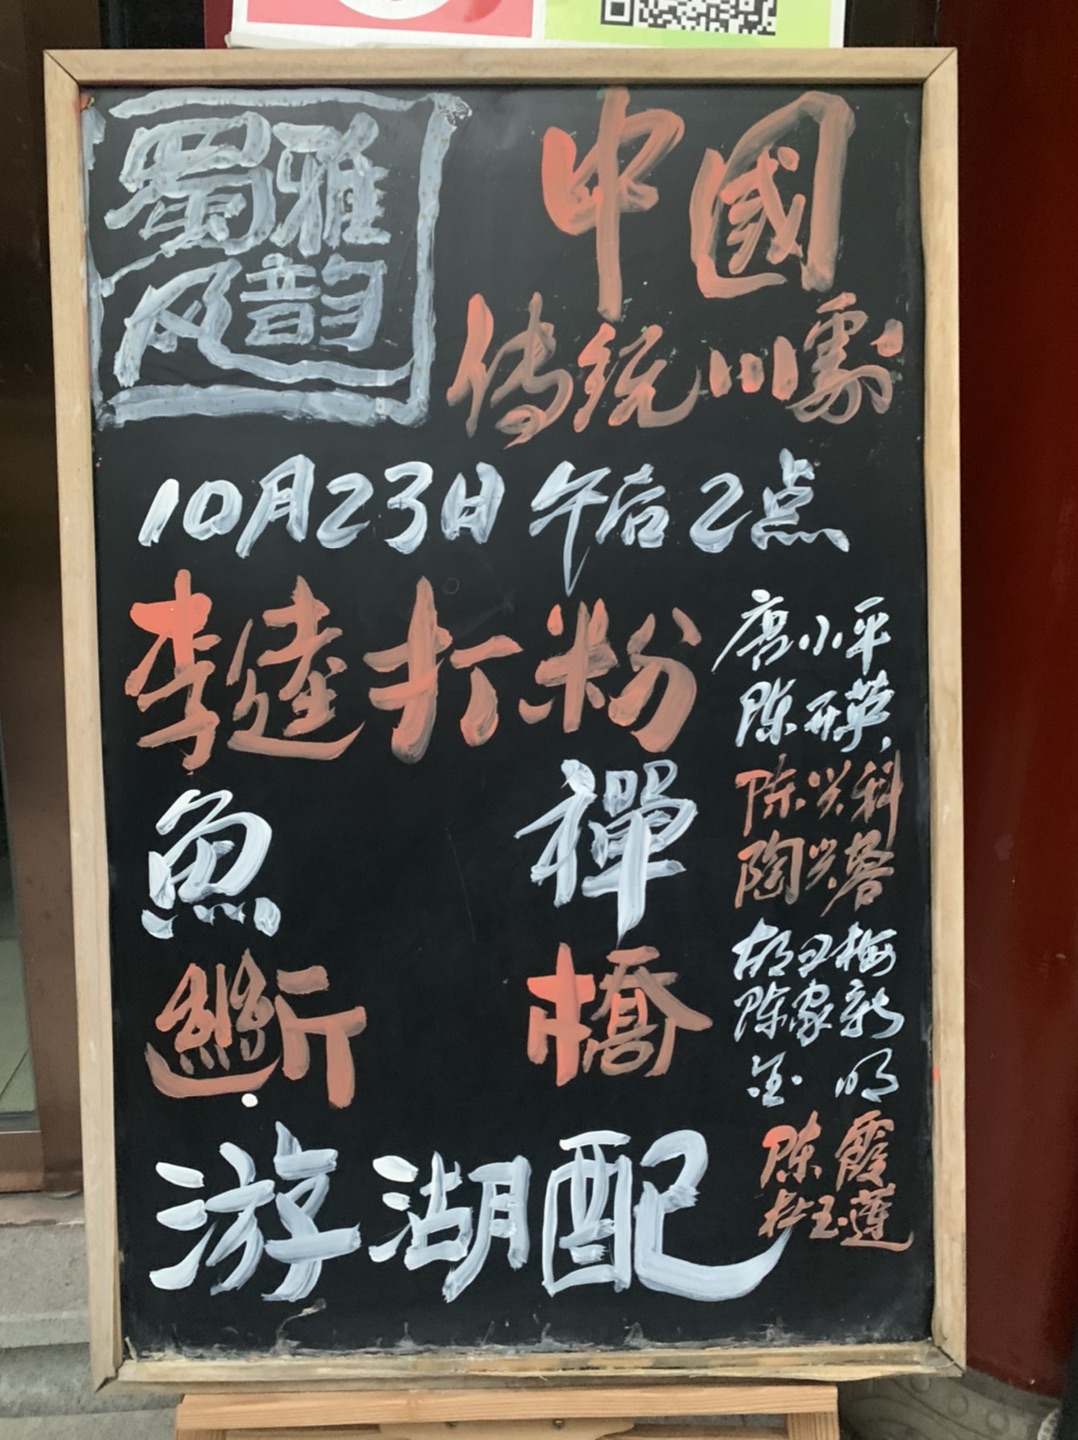 蜀风
雅韵
中國
传统川劇
10月23日午后2点
李逵打粉
唐小平
陈开英
魚禪
陈兴科
斷橋
陈家新
金明
游湖配
陈霞
杜玉莲